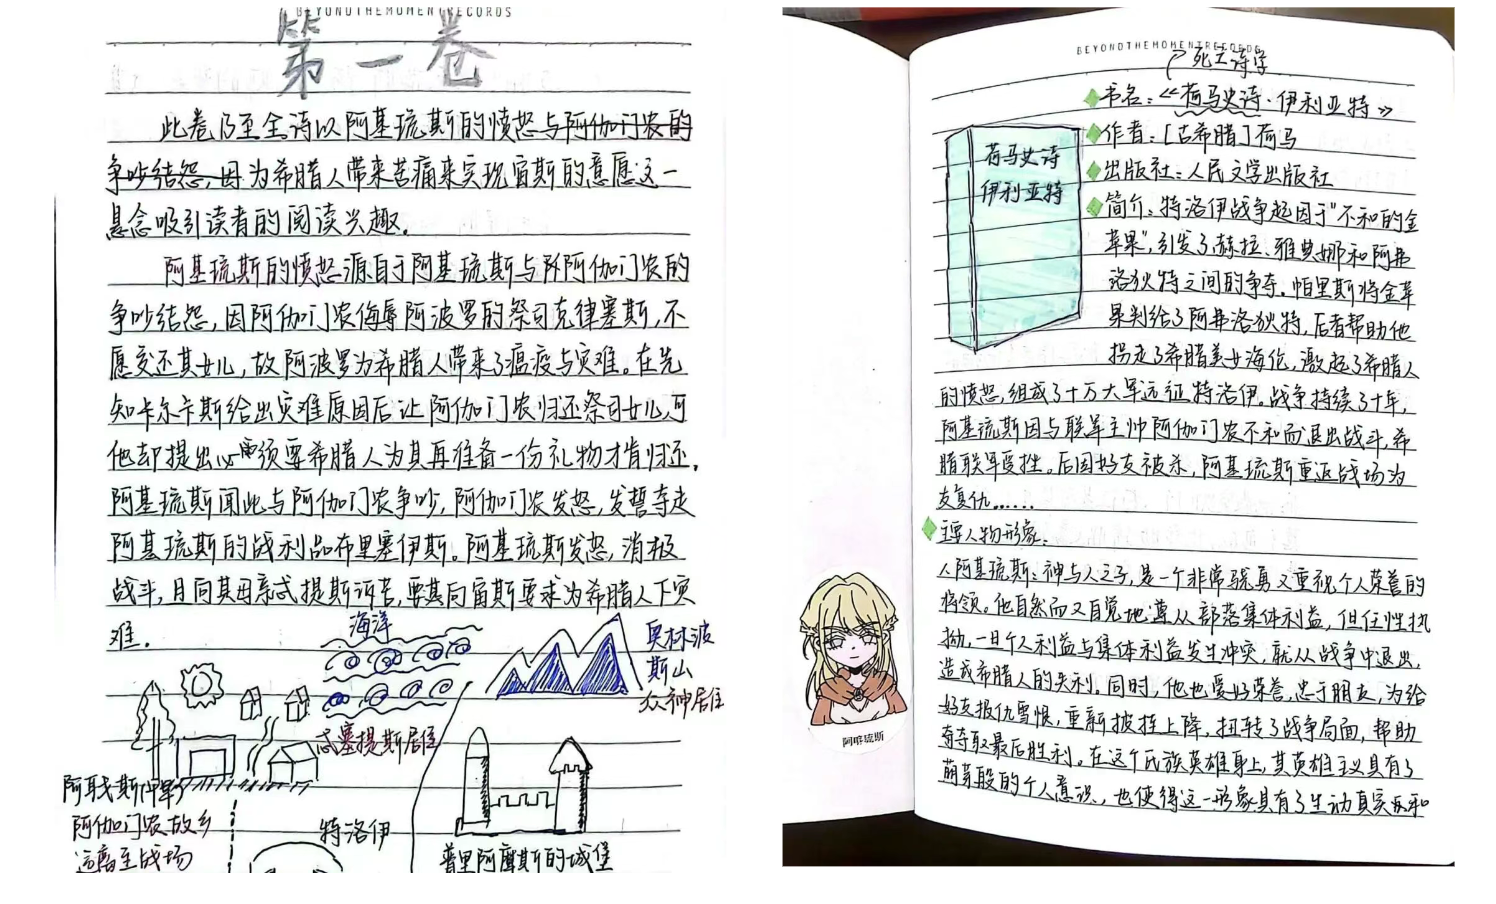 BEYONDTHEMOMENTRECORDS
第一卷
此卷乃至全诗以阿基琉斯的愤怒与阿伽门农的
争吵结怨,因为希腊人带来苦痛来实现宙斯的意愿这一
悬念吸引读者的阅读兴趣。
阿基琉斯的愤怒源自于阿基琉斯与阿伽门农的
争吵结怨,因阿伽门农侮辱阿波罗的祭司克律塞斯,不
愿交还其女儿,故阿波罗为希腊人带来了瘟疫与灾难。在先
知卡尔卡斯给出灾难原因后让阿伽门农归还祭司女儿,可
他却提出必须要希腊人为其再准备一份礼物才肯归还。
阿基琉斯闻此与阿伽门农争吵,阿伽门农发怒,发誓夺走
阿基琉斯的战利品布里塞伊斯。阿基琉斯发怒,消极
战斗,且向其母亲忒提斯诉苦,要其向宙斯要求为希腊人下灾
难.
海洋
奥林波
斯山
众神居住
忒提斯居住
阿伽门农故乡
远离至战场
特洛伊
普里阿摩斯的城堡
BEYONDTHEMOMENTRECORDS
死亡诗学
书名:《荷马史诗·伊利亚特》
作者:[古希腊]荷马
出版社:人民文学出版社
简介:特洛伊战争起因于"不和的金
苹果",引发了赫拉、雅典娜和阿弗
洛狄特之间的争夺.帕里斯将金苹
果判给了阿弗洛狄特,后者帮助他
拐走了希腊美女海伦,激起了希腊人
的愤怒,组成了十万大军远征特洛伊。战争持续了十年,
阿基琉斯因与联军主帅阿伽门农不和而退出战斗,希
腊联军受挫。后因好友被杀,阿基琉斯重返战场为
友复仇......
荷马史诗
伊利亚特
主要人物形象.
1.阿基琉斯:神与人之子,是一个非常骁勇又重视个人荣誉的
将领。他自然而又自觉地遵从部落集体利益,但任性执
拗,一旦个人利益与集体利益发生冲突,就从战争中退出,
造成希腊人的失利。同时,他也爱好荣誉,忠于朋友,为给
好友报仇雪恨,重新披挂上阵,扭转了战争局面,帮助
夺取最后胜利。在这个氏族英雄身上,其英雄主义具有了
萌芽般的个人意识,也使得这一形象具有了生动真实
阿喀琉斯